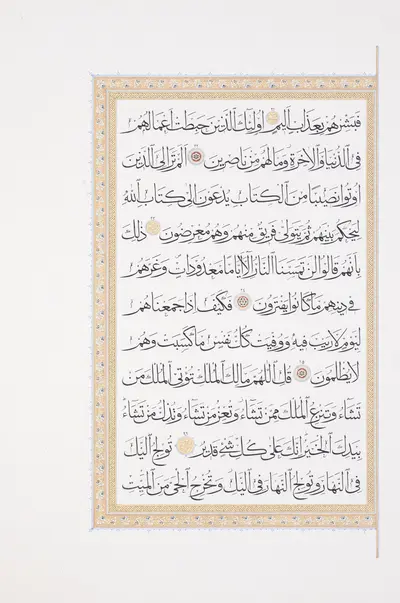 فَبَشِّرْهُمْ بِعَذَابٍ اَلِيمٍ اُولٰئِكَ الَّذِينَ حَبِطَتْ اَعْمَالُهُمْ
فِى الدُّنْيَا وَالْاٰخِرَةِ وَمَالَهُمْ مِنْ نَاصِرِينَ اَلَمْ تَرَ اِلَى الَّذِينَ
اُوتُوا نَصِيبًا مِنَ الْكِتَابِ يُدْعَوْنَ اِلٰى كِتَابِ اللّٰهِ
لِيَحْكُمَ بَيْنَهُمْ ثُمَّ يَتَوَلّٰى فَرِيقٌ مِنْهُمْ وَهُمْ مُعْرِضُونَ ذٰلِكَ
بِاَنَّهُمْ قَالُوا لَنْ تَمَسَّنَا النَّارُ اِلَّا اَيَّامًا مَعْدُودَاتٍ وَغَرَّهُمْ
فِى دِينِهِمْ مَا كَانُوا يَفْتَرُونَ فَكَيْفَ اِذَا جَمَعْنَاهُمْ
لِيَوْمٍ لَارَيْبَ فِيهِ وَوُفِّيَتْ كُلُّ نَفْسٍ مَا كَسَبَتْ وَهُمْ
لَا يُظْلَمُونَ قُلِ اللّٰهُمَّ مَالِكَ الْمُلْكِ تُؤْتِى الْمُلْكَ مَنْ
تَشَاءُ وَتَنْزِعُ الْمُلْكَ مِمَّنْ تَشَاءُ وَتُعِزُّ مَنْ تَشَاءُ وَتُذِلُّ مَنْ تَشَاءُ
بِيَدِكَ الْخَيْرُ اِنَّكَ عَلٰى كُلِّ شَىْءٍ قَدِيرٌ تُولِجُ الَّيْلَ
فِى النَّهَارِ وَتُولِجُ النَّهَارَ فِى الَّيْلِ وَتُخْرِجُ الْحَىَّ مِنَ الْمَيِّتِ